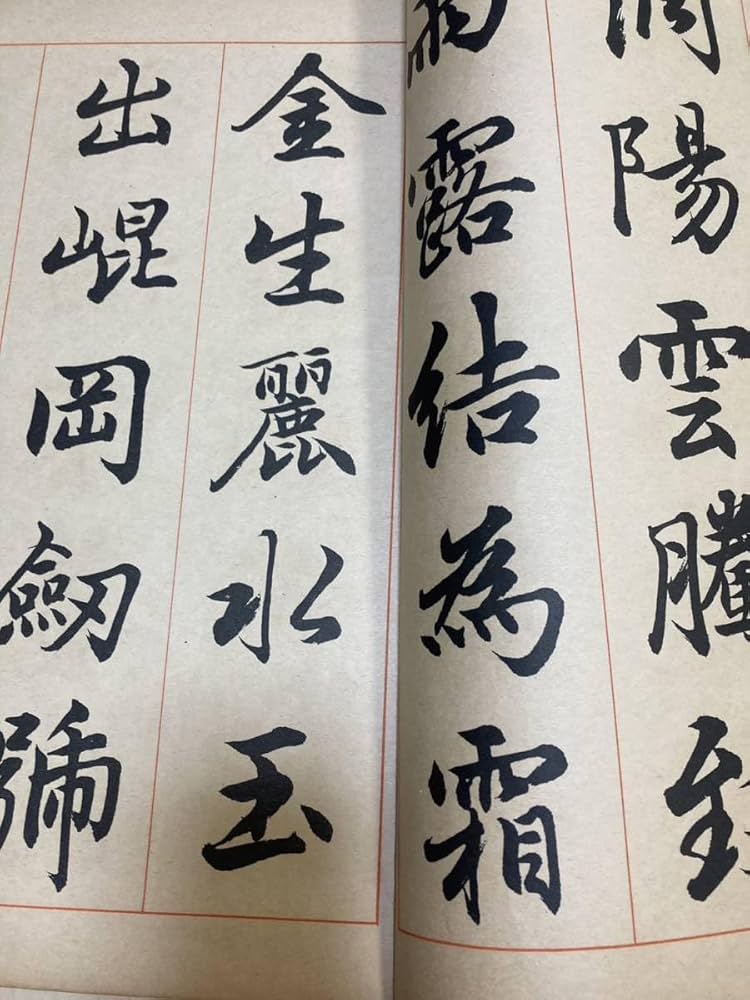 調陽雲騰致
雨露結為霜
金生麗水玉
出崐岡劒號